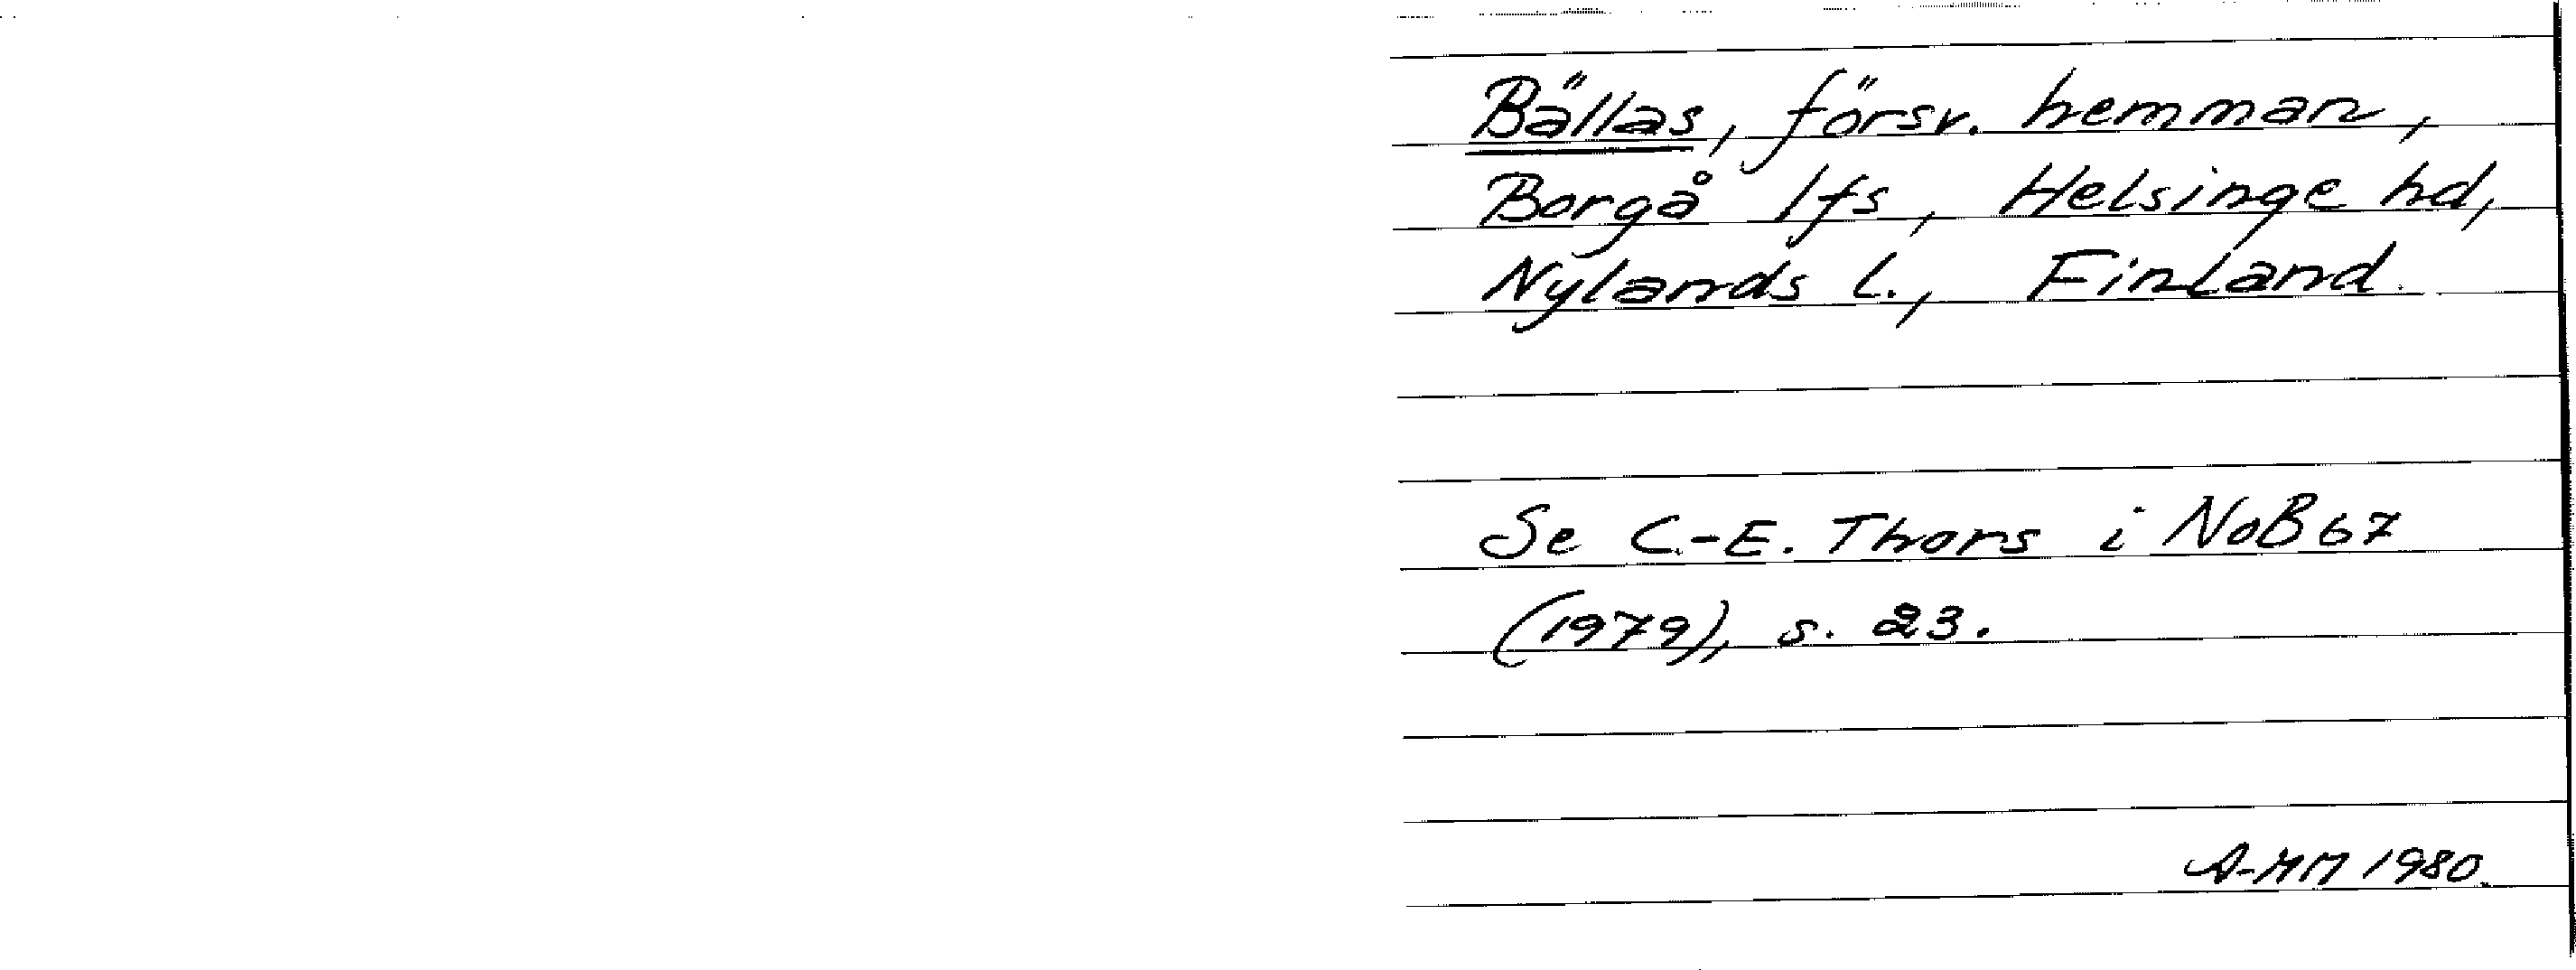 Bällas, försv. hemman,
Borgå lfs, Helsinge hd,
Nylands l., Finland.
Se C.-E. Thors i NoB 67
(1979), s. 23.
A-MM 1980.